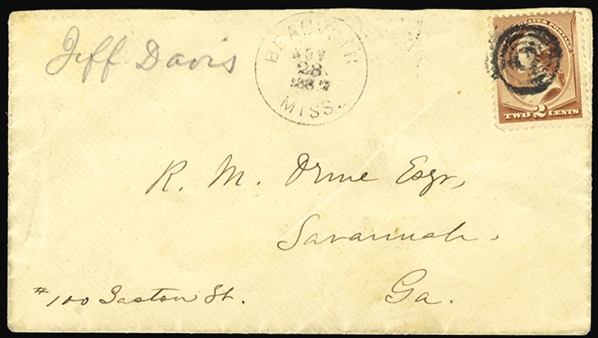 Jeff Davis
BEAUVOIR
NOV
28
MISS.
UNITED STATES POSTAGE
TWO 2 CENTS
R. M. Orme Esqr,
Savannah,
#100 Gaston St.
Ga.